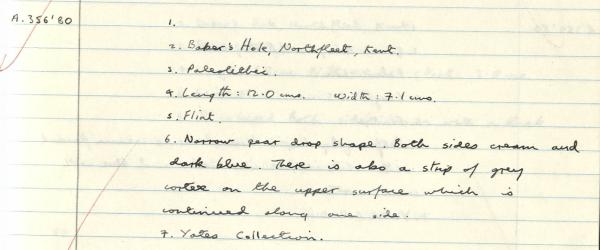 A.356'80
1.
2. Baker's Hole, Northfleet, Kent.
3. Paleolithic.
4. Length: 12.0 cms. Width: 7.1 cms.
5. Flint.
6. Narrow pear drop shape. Both sides cream and
dark blue. There is also a strip of grey
cortex on the upper surface which is
continued along one side.
7. Yates Collection.